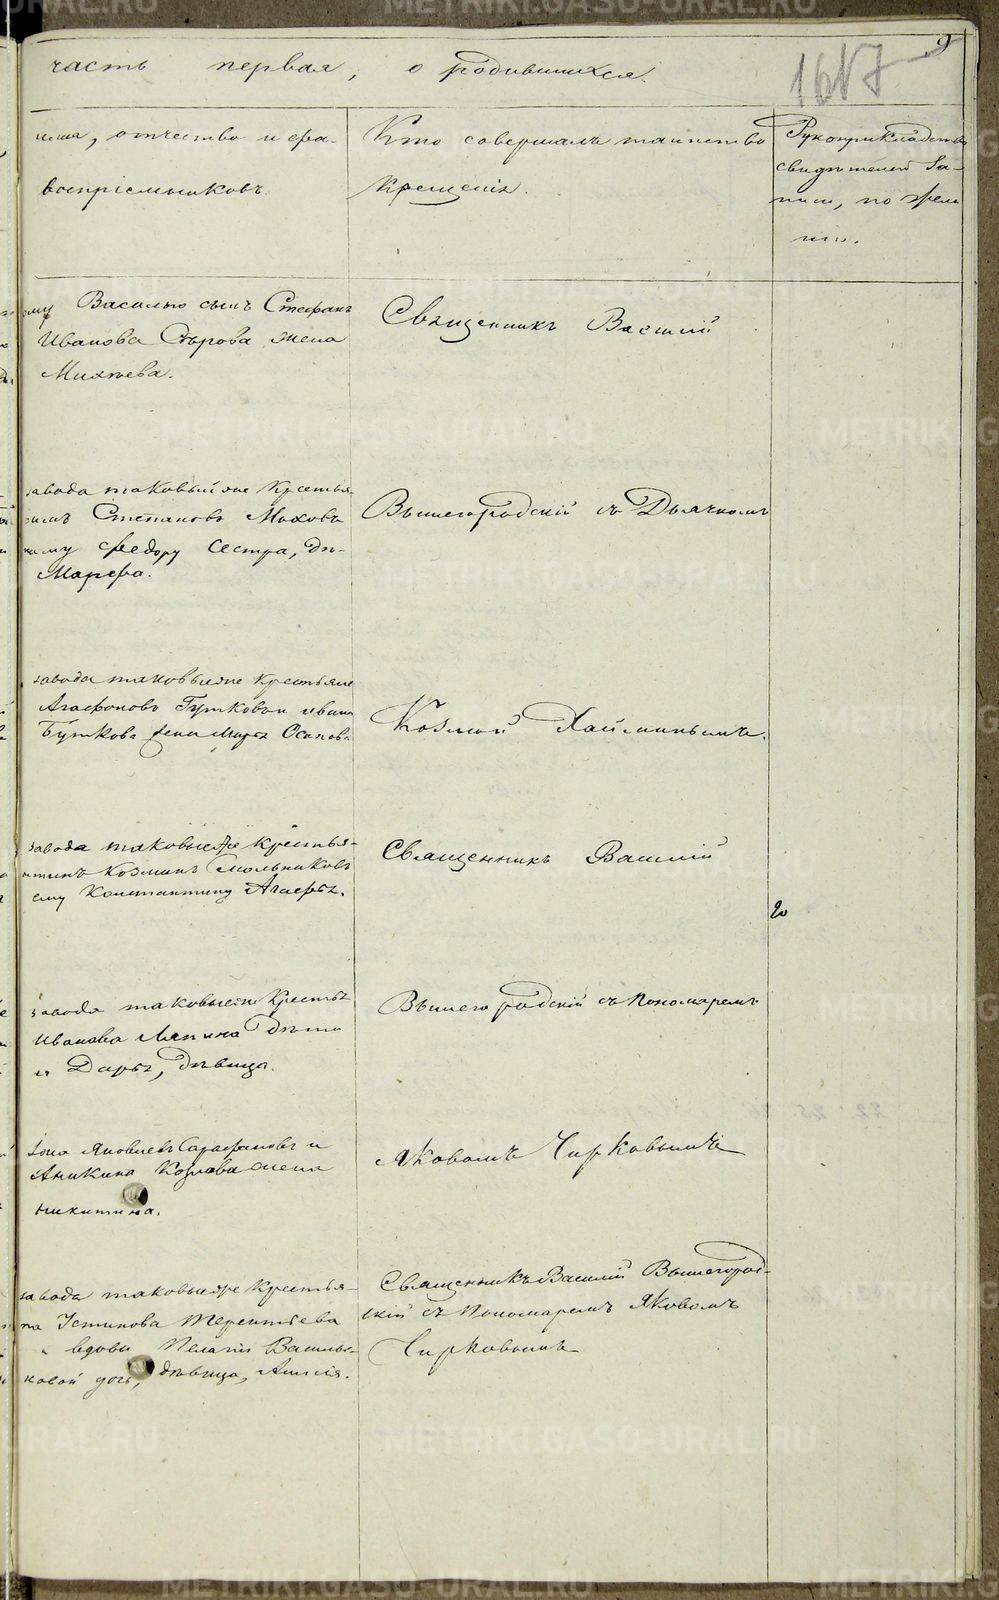 9
1617
часть первая, о родившихся.
имя, отчество и фа-
воспріемниковъ.
Кто совершалъ таинство
крещенія.
Рукоприкладство
свидѣтелей за-
писи, по жела
нію.
ому Василью сынъ Стефанъ
Иванова Сырова жена
Михѣева.
Священникъ Василій
завода таковыеже крестья-
Степановъ Моховъ
ному Федору сестра, дѣ-
Марѳа.
Вышегородскій съ Дьячкомъ
завода таковыеже крестьяне
Агафоновъ Гутковъ и Ивана
Буткова жена Марья Осипова
Козмой Хайминымъ.
завода таковыеже крестья-
Козминъ Смольниковъ
ему Константину Агафья.
Священникъ Василій
завода таковыеже крестья
Иванова Ляпина дѣти
и Дарья, дѣвица.
Вышегородскій съ Пономаремъ
Іона Яковлевъ Сарафановъ и
Аникина Козлова жена
Никитина.
Яковомъ Чирковымъ
завода таковыеже крестья-
на Устинова Терентьева
вдовы Пелагіи Василь-
ковой дочь, дѣвица, Анисія.
Священникъ Василій Вышегород-
скій съ Пономаремъ Яковомъ
Чирковымъ
METRIKI.GASO-URAL.RU